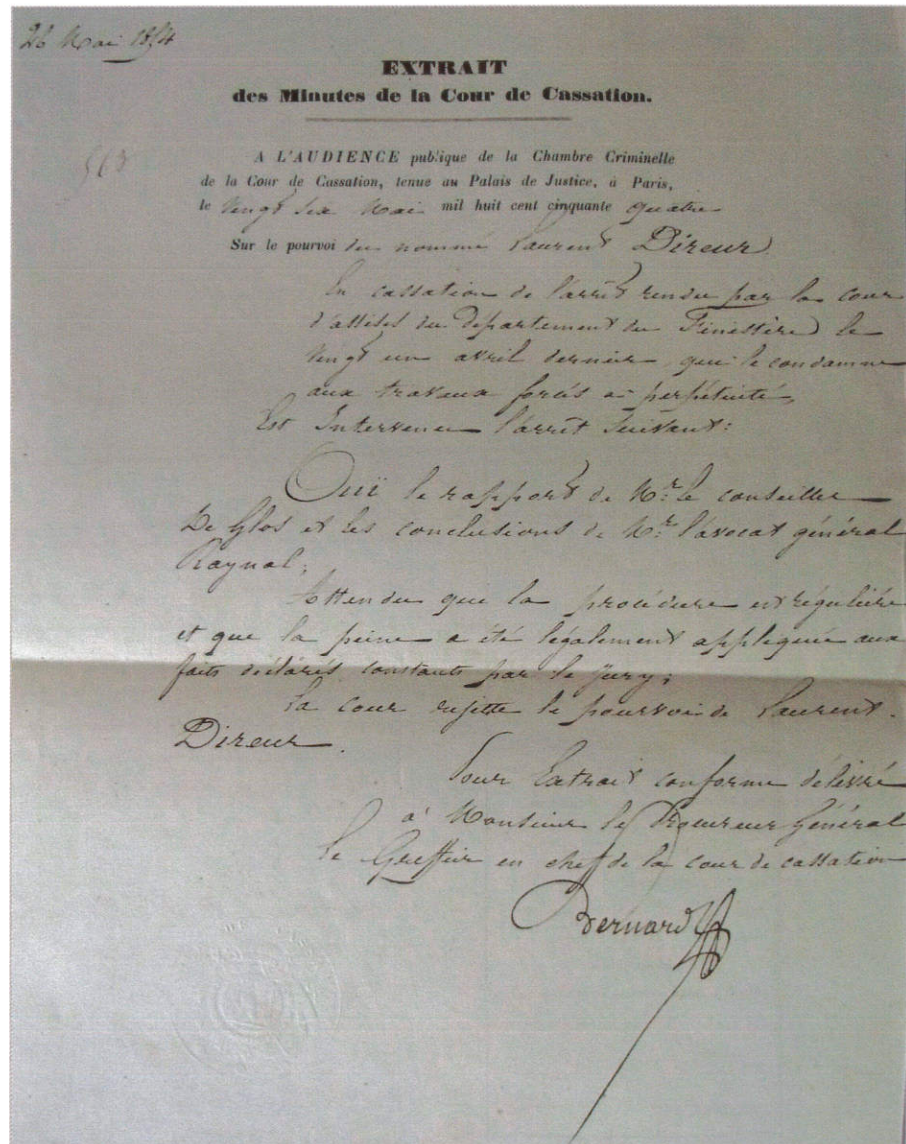 26 Mai 1854
EXTRAIT
des Minutes de la Cour de Cassation.
563
A L'AUDIENCE publique de la Chambre Criminelle
de la Cour de Cassation, tenue au Palais de Justice, à Paris,
le Vingt Six Mai mil huit cent cinquante quatre
Sur le pourvoi du nommé Laurent Direur
En cassation de l'arrêt rendu par la cour
d'assises du département du Finistère le
vingt un avril dernier qui le condamne
aux travaux forcés à perpétuité,
Est Intervenu l'arrêt Suivant:
Ouï le rapport de Mr. le conseiller
De Glos et les conclusions de Mr. l'avocat général
Raynal;
Attendu que la procédure est régulière
et que la peine a été légalement appliquée aux
faits déclarés constants par le jury;
La cour rejette le pourvoi de Laurent
Direur.
Pour Extrait conforme délivré
à Monsieur le Procureur Général
Le Greffier en chef de la cour de cassation
Bernard